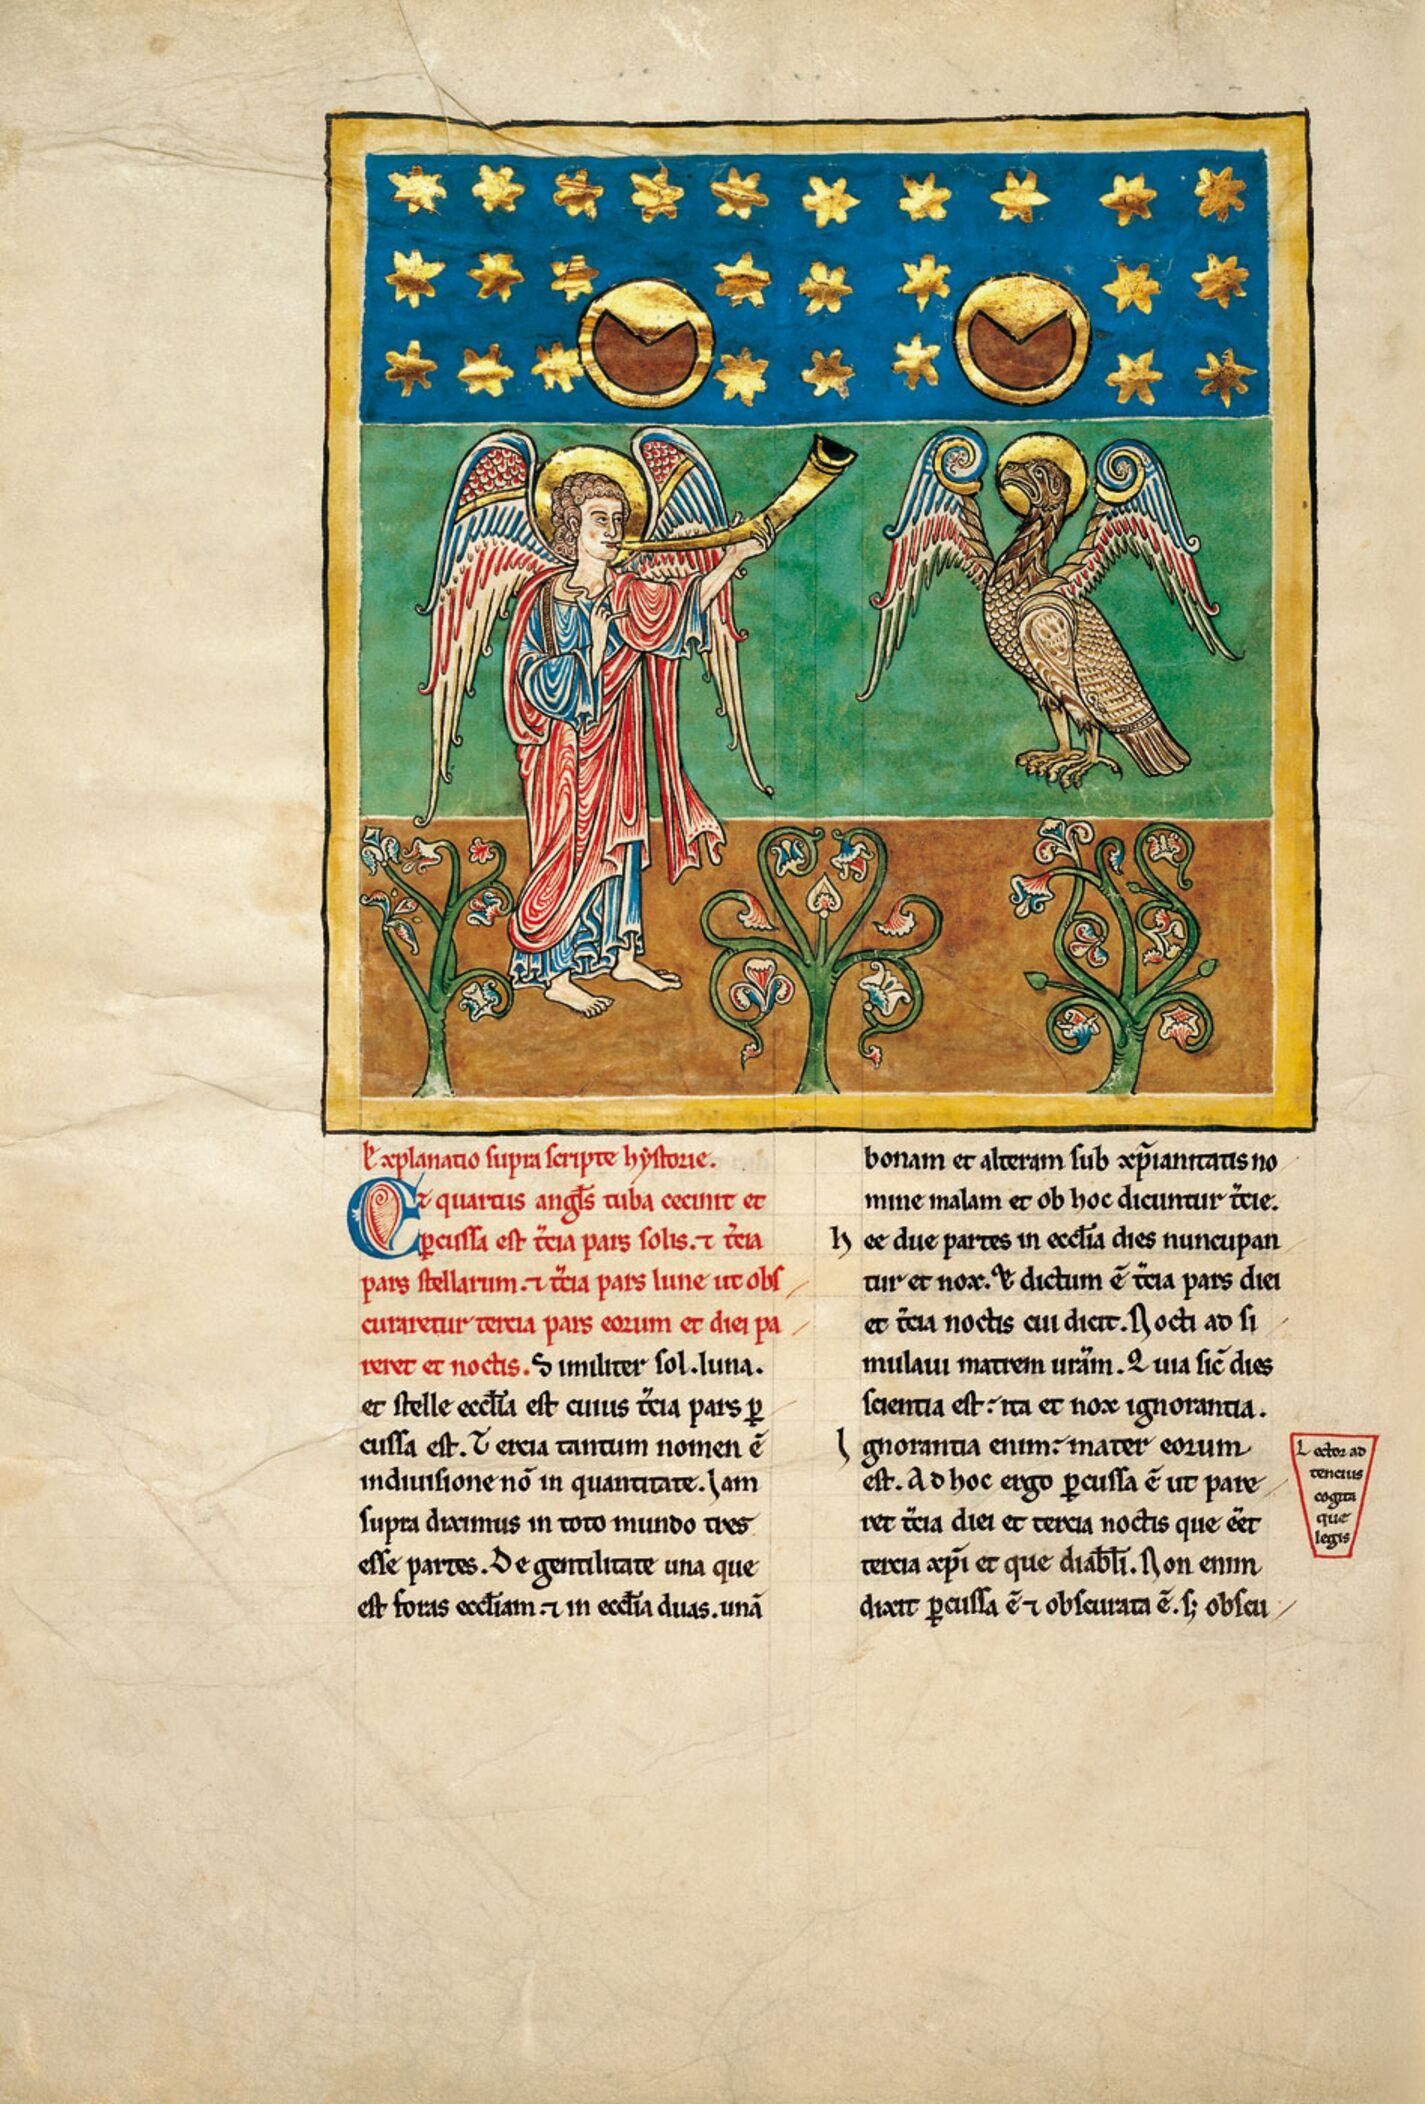 Explanatio supra scripte hystorie.
Et quartus angl̄s tuba cecinit et
ꝑcussa est t̄cia pars solis. ⁊ t̄cia
pars stellarum. ⁊ t̄cia pars lune ut obs
curaretur tercia pars eorum et diei pa
reret et noctis. Similiter sol. luna.
et stelle eccl̄ia est cuius t̄cia pars ꝑ
cussa est. Tercia tantum nomen ē
indiuisione nō in quantitate. Iam
supra diximus in toto mundo tres
esse partes. De gentilitate una que
est foras eccl̄iam. ⁊ in eccl̄ia duas. unā
bonam et alteram sub xp̄ianitatis no
mine malam et ob hoc dicuntur t̄cie.
hee due partes in eccl̄ia dies nuncupan
tur et nox. Et dictum ē t̄cia pars diei
et t̄cia noctis cui dicit. Nocti ad si
mulaui matrem urām. Quia sic̄ dies
scientia est: ita et nox ignorantia.
Ignorantia enim: mater eorum
est. Ad hoc ergo ꝑcussa ē ut pare
ret t̄cia diei et tercia noctis que eēt
tercia xp̄i et que diabl̄i. Non enim
dixit ꝑcussa ē ⁊ obscurata ē. s; obscu
Lector ad
tencius
cogita
que
legis